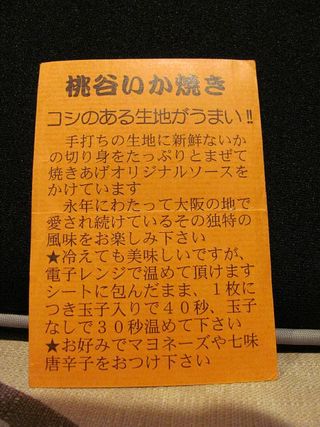 桃谷いか焼き
コシのある生地がうまい!!
手打ちの生地に新鮮ないか
の切り身をたっぷりとまぜて
焼きあげオリジナルソースを
かけています
永年にわたって大阪の地で
愛され続けているその独特の
風味をお楽しみ下さい
★冷えても美味しいですが、
電子レンジで温めて頂けます
シートに包んだまま、1枚に
つき玉子入りで40秒、玉子
なしで30秒温めて下さい
★お好みでマヨネーズや七味
唐辛子をおつけ下さい